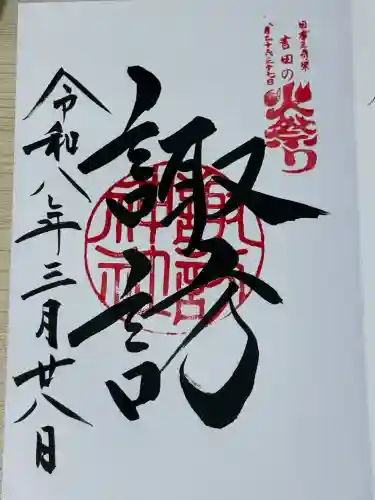 日本三奇祭
吉田の
八月二十六、二十七日
火祭り
諏訪
諏訪神社
令和八年三月廿八日